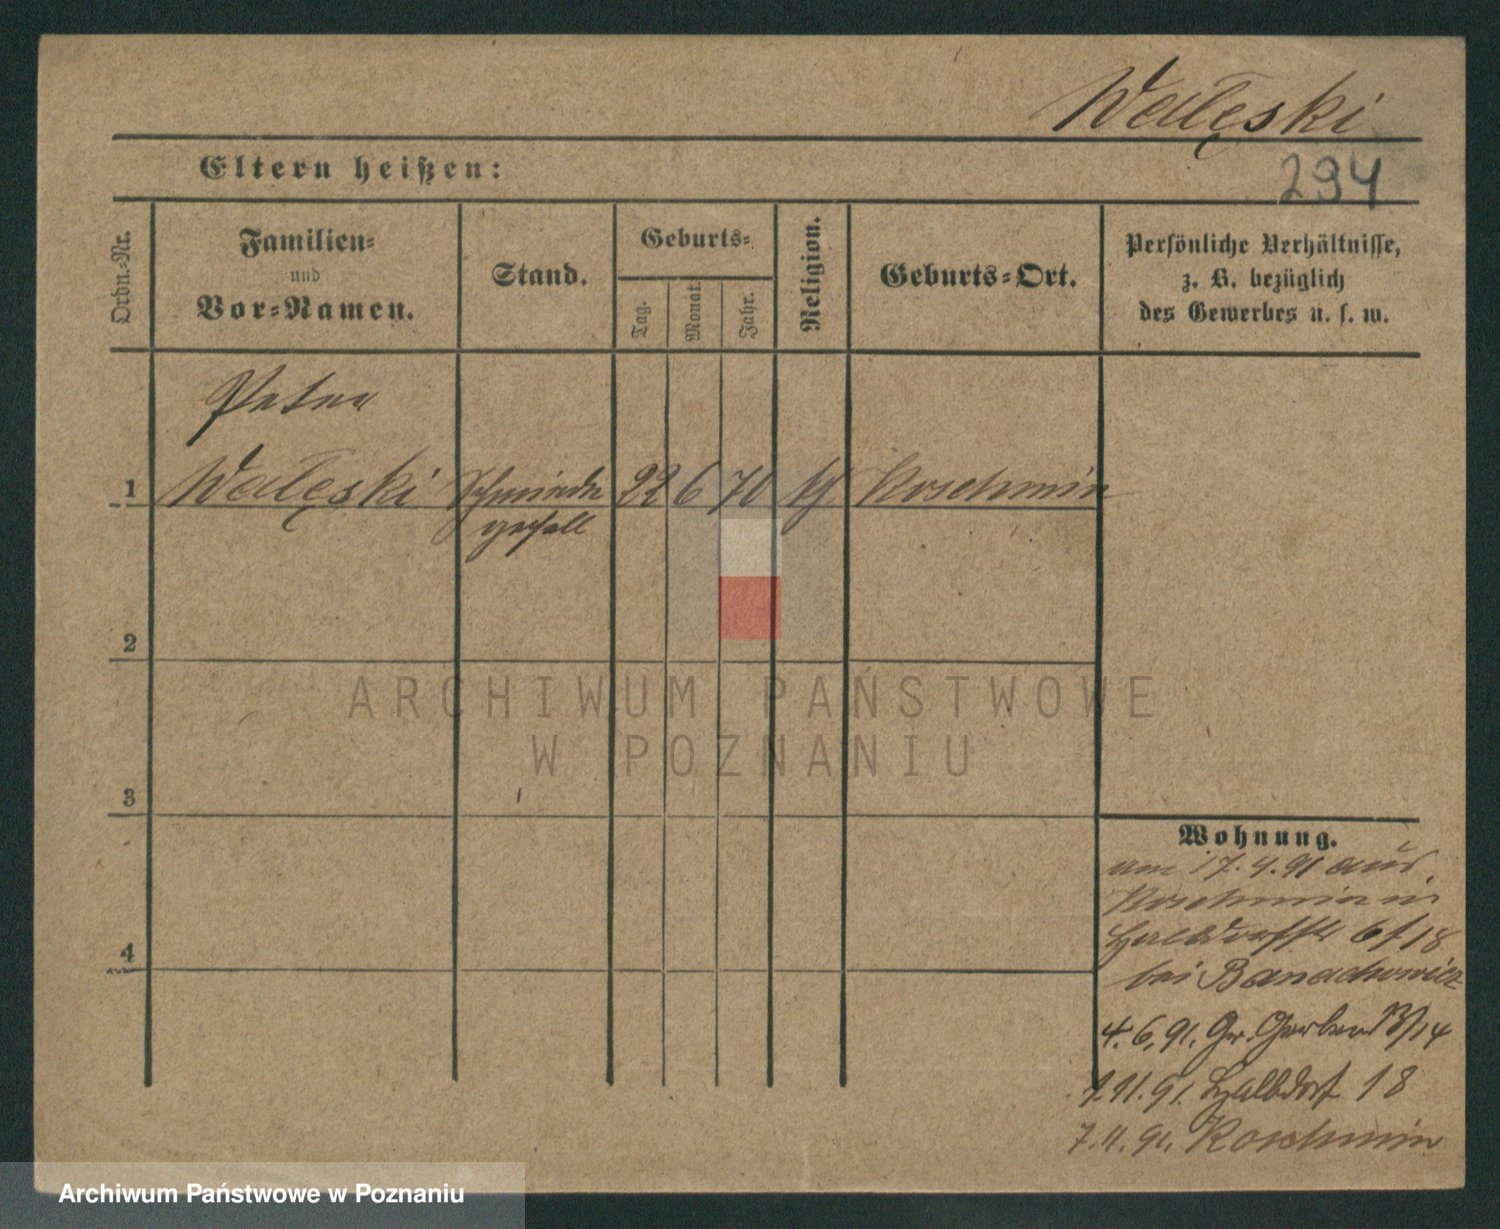 Wałęski
Eltern heißen:
294
Ordn.-Nr.
Familien-
und
Vor-Namen.
Stand.
Geburts-
Tag.
Monat.
Jahr.
Religion.
Geburts-Ort.
Persönliche Verhältnisse,
z. B. bezüglich
des Gewerbes u. s. w.
Peter
1 Wałęski Schmiede 22 6 70 Koschmin
gesell
2
3
4
ARCHIWUM PAŃSTWOWE
W POZNANIU
Wohnung.
am 17.4.91 aus
Koschmin in
Halbdorfstr 18
bei Banachowicz
4.6.91. Gr. Gerber 13/14
1.11.91. Halbdorf 18
7.11.91. Koschmin
Archiwum Państwowe w Poznaniu